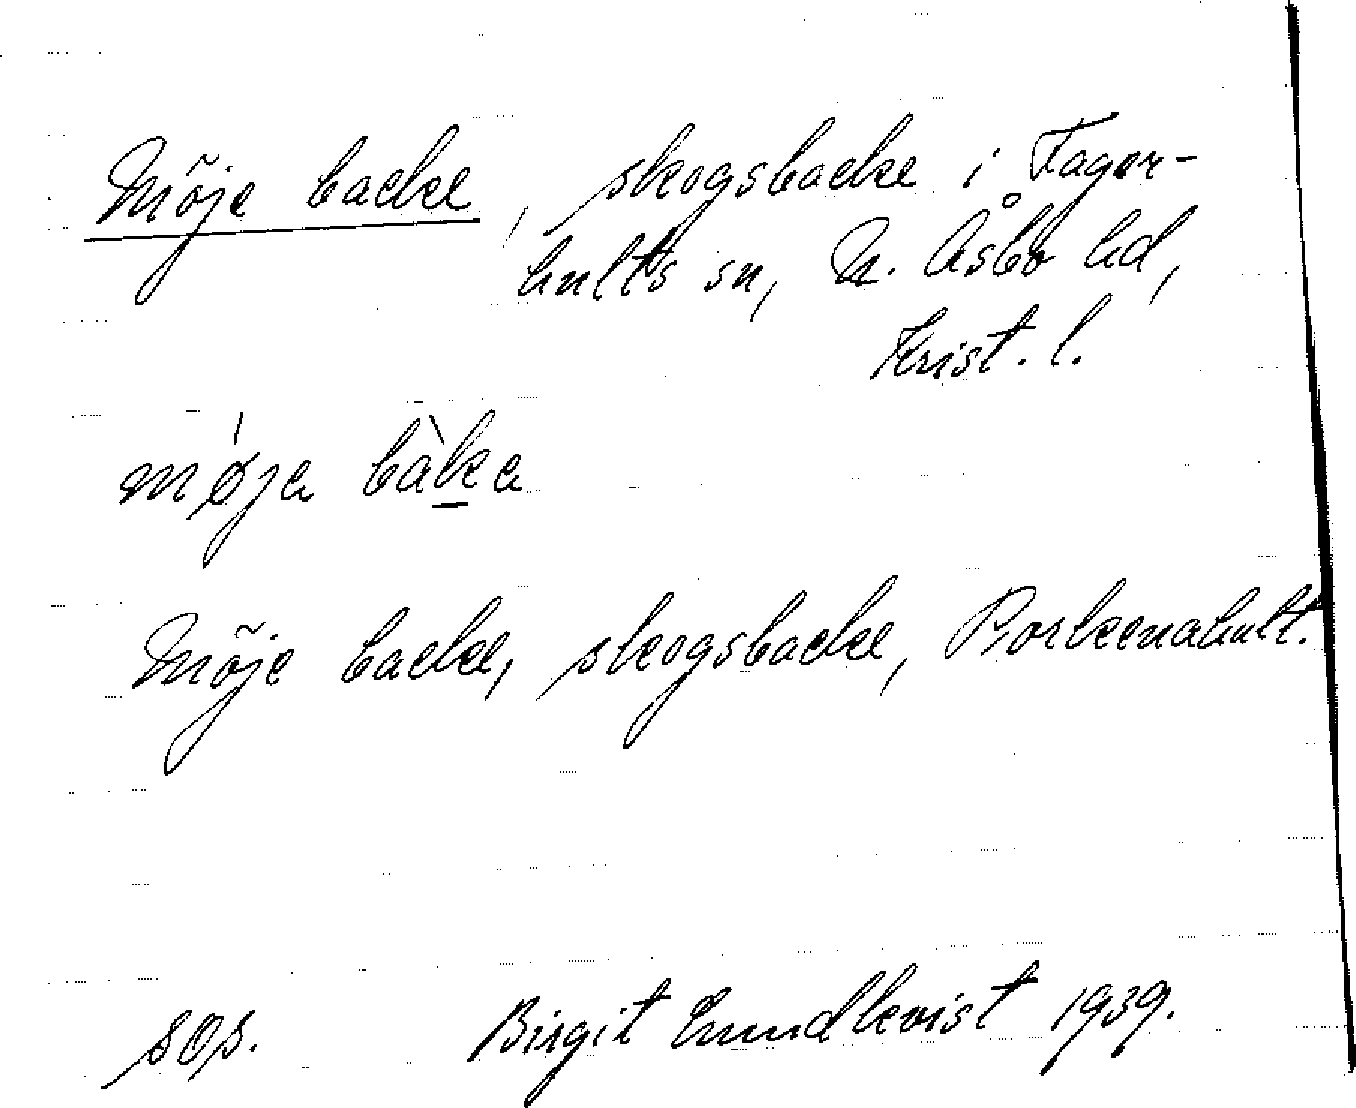 Möje backe, skogsbacke i Fager-
hults sn, N. Åsbo hd,
Krist. l.
møja bàka
Möje backe, skogsbacke, Porkenahult.
sos. Birgit Lundkvist 1939.